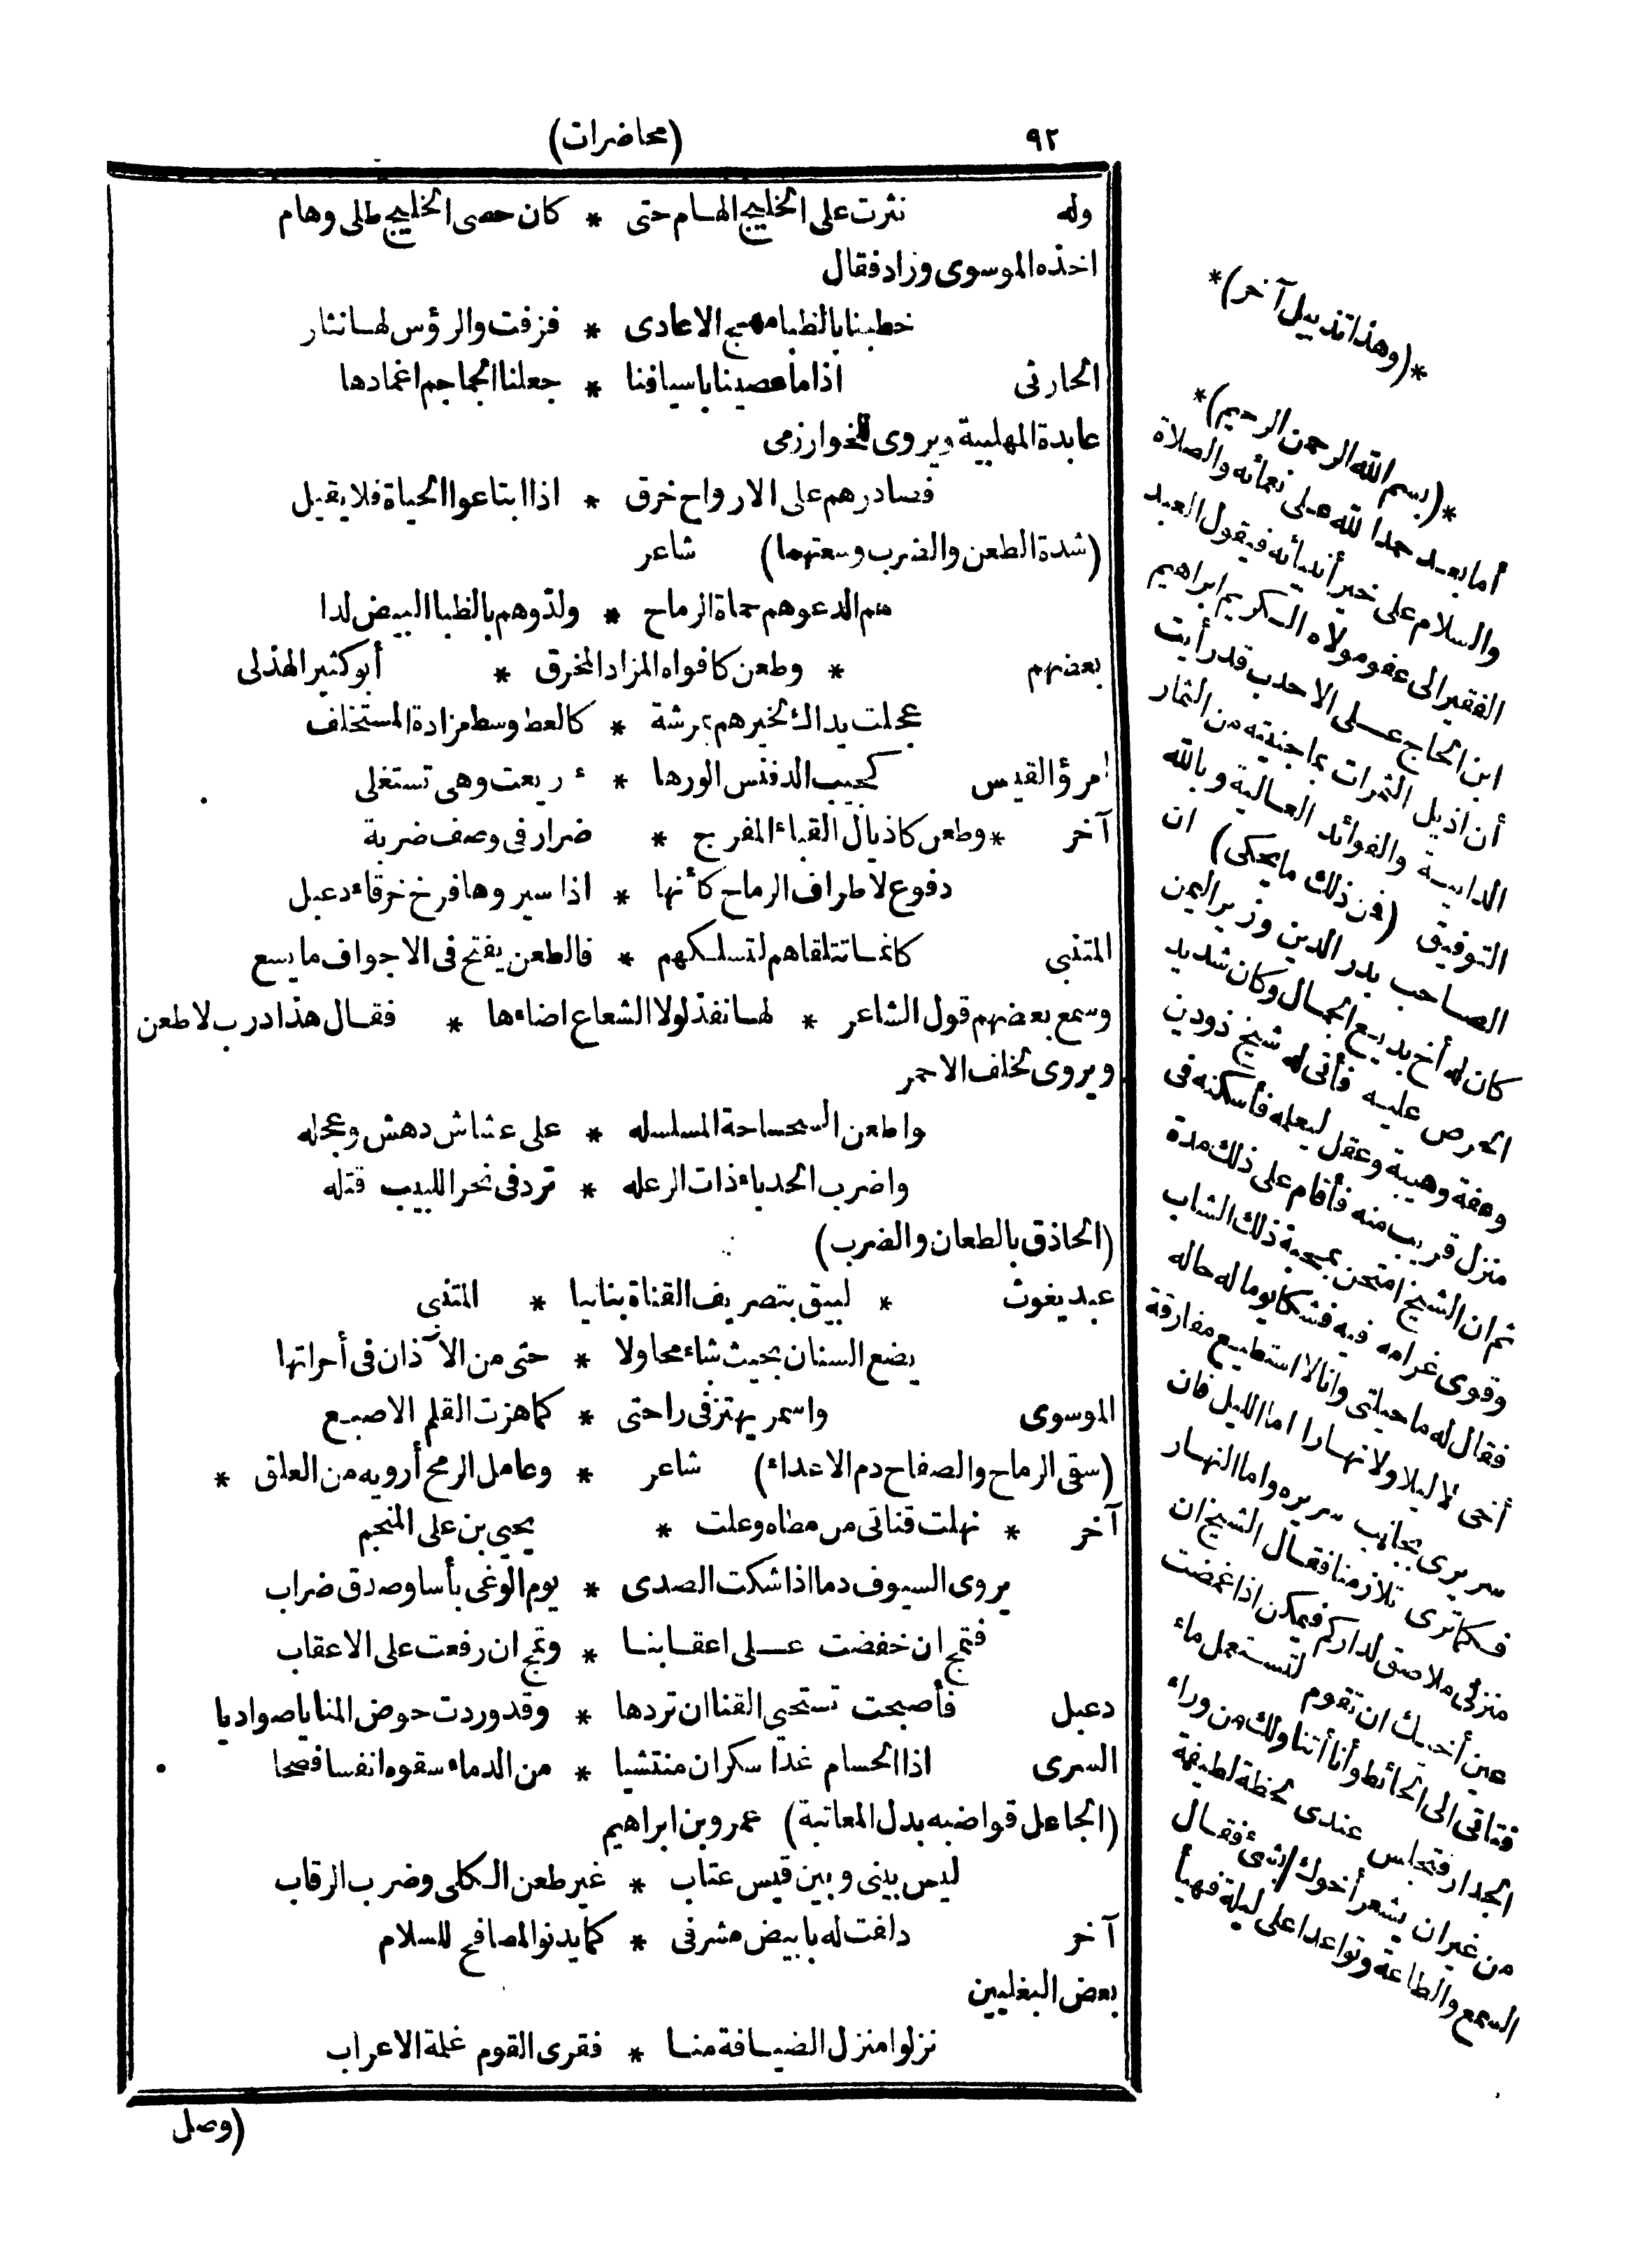 ٩٢
(محاضرات)
وله نثرت على الخليج الهام حتى * كان حصى الخليج طلى وهام
اخذه الموسوى وزاد فقال
خطبنا بالظبا مهج الاعادى * فزفت والرؤس لها نثار
الحارثى اذا ما عصينا باسيافنا * جعلنا الجماجم اغمادها
عابدة المهلبية ويروى للخوارزمى
فصادرهم على الارواح خرق * اذا ابتاعوا الحياة فلا يقيل
(شدة الطعن والضرب وسعتهما) شاعر
هم الدعوهم حماة الرماح * ولذوهم بالظبا البيض لدا
بعضهم * وطعن كافواه المزاد المخرق * أبو كثير الهذلى
عجلت يداك لخيرهم بمرشة * كالعط وسط مزادة المستخلف
امرؤ القيس كجيب الدفنس الورها * ء ريعت وهى تستفلى
آخر * وطعن كاذيال القباء المفرج * ضرار فى وصف ضربة
دفوع لاطراف الرماح كأنها * اذا سبروها فرخ خرقاء دعبل
المتنبي كانما تتلقاهم لتسلكهم * فالطعن يفتح فى الاجواف ما يسع
وسمع بعضهم قول الشاعر * لها نفذ لولا الشعاع اضاءها * فقال هذا درب لا طعن
ويروى لخلف الاحمر
واطعن السحساحة المسلسله * على عشاش دهش وعجله
واضرب الخدباء ذات الرعله * ترد فى نحر اللبيب قتله
(الحاذق بالطعان والضرب)
عبد يغوث * لبيق بتصريف القناة بنانيا * المتنبى
يضع السنان بحيث شاء محاولا * حتى من الآذان فى أخراتها
الموسوى واسمر يهتز فى راحتى * كما هزت القلم الاصبع
(سقى الرماح والصفاح دم الاعداء) شاعر * وعامل الرمح أرويه من العلق *
آخر * نهلت قناتى من مطاه وعلت * يحيي بن على المنجم
يروى السيوف دما اذا شكت الصدى * يوم الوغى بأسا وصدق ضراب
فتمج ان خفضت على اعقابنا * وتمج ان رفعت على الاعقاب
دعبل فأصبحت تستحيي القنا ان تردها * وقد وردت حوض المنايا صواديا
السرى اذا الحسام غدا سكران منتشيا * من الدماء سقوه انفسا فصحا
(الجاعل قواضبه بدل المعاتبة) عمرو بن ابراهيم
ليس بينى وبين قيس عتاب * غير طعن الكلى وضرب الرقاب
آخر دلفت له بابيض مشرفى * كما يدنو المصافح للسلام
بعض البغليين
نزلوا منزل الضيافة منا * فقرى القوم غلمة الاعراب
(وصل
*(وهذا تذييل آخر)*
*(بسم الله الرحمن الرحيم)*
أما بعد حمدا لله على نعمائه والصلاة
والسلام على خير أنبيائه فيقول العبد
الفقير الى عفو مولاه الكريم ابراهيم
ابن الحاج على الاحدب قد رأيت
أن اذيل الثمرات بما جنيته من الثمار
الدانية والفوائد العالية وبالله
التوفيق (فمن ذلك ما يحكى) ان
الصاحب بدر الدين وزير اليمن
كان له أخ بديع الجمال وكان شديد
الحرص عليه فأتى له شيخ ذو دين
وعفة وهيبة وعقل ليعلمه فأسكنه فى
منزل قريب منه فأقام على ذلك مدة
ثم ان الشيخ امتحن بمحبة ذلك الشاب
وقوى غرامه فيه فشكا يوما له حاله
فقال له ما حيلتى وانا لا استطيع مفارقة
أخى لا ليلا ولا نهارا اما الليل فان
سريرى بجانب سريره واما النهار
فكما ترى تلازمنا فقال الشيخ ان
منزلى ملاصق لداركم فيمكن اذا غمضت
عين أخيك ان تقوم لتستعمل ماء
فتاتى الى الحائط وأنا أتناولك من وراء
الجدار فتجلس عندى لحظة لطيفة
من غير ان يشعر أخوك بشئ فقال
السمع والطاعة وتواعدا على ليلة فهيأ